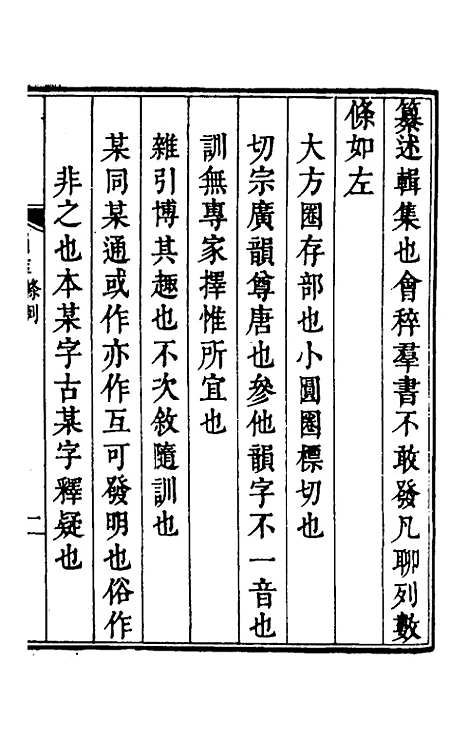 纂述輯集也會稡羣書不敢發凡聊列數
條如左
大方圈存部也小圓圈標切也
切宗廣韻尊唐也參他韻字不一音也
訓無專家擇惟所宜也
雜引博其趣也不次敘隨訓也
某同某通或作亦作互可發明也俗作
非之也本某字古某字釋疑也
條例
二